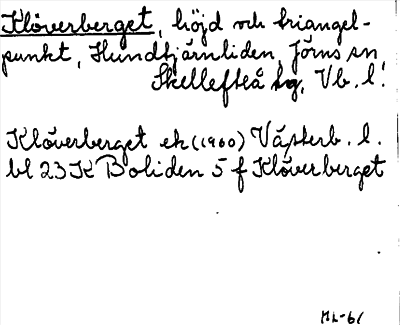 Klöverberget, höjd och triangel-
punkt, Hundtjärnliden, Jörns sn,
Skellefteå kg, Vb. l.
Klöverberget ek (1960) Västerb. l.
bl 23 K Boliden 5 f Klöverberget
ML-61